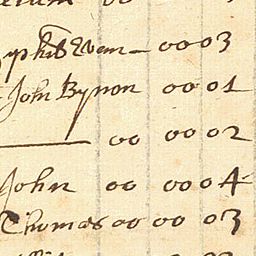 Evan – 00 03
John Bynon 00 01
00 00 02
John 00 00 04
Thomas 00 00 03